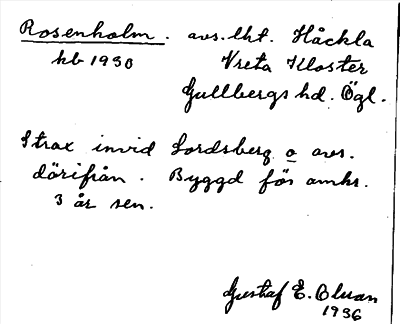 Rosenholm. avs. lht. Håckla
hb 1930 Vreta Kloster
Gullbergs hd. Ögl.
Strax invid Lordsberg o avs.
därifrån. Byggd för omkr.
3 år sen.
Gustaf E.
1936